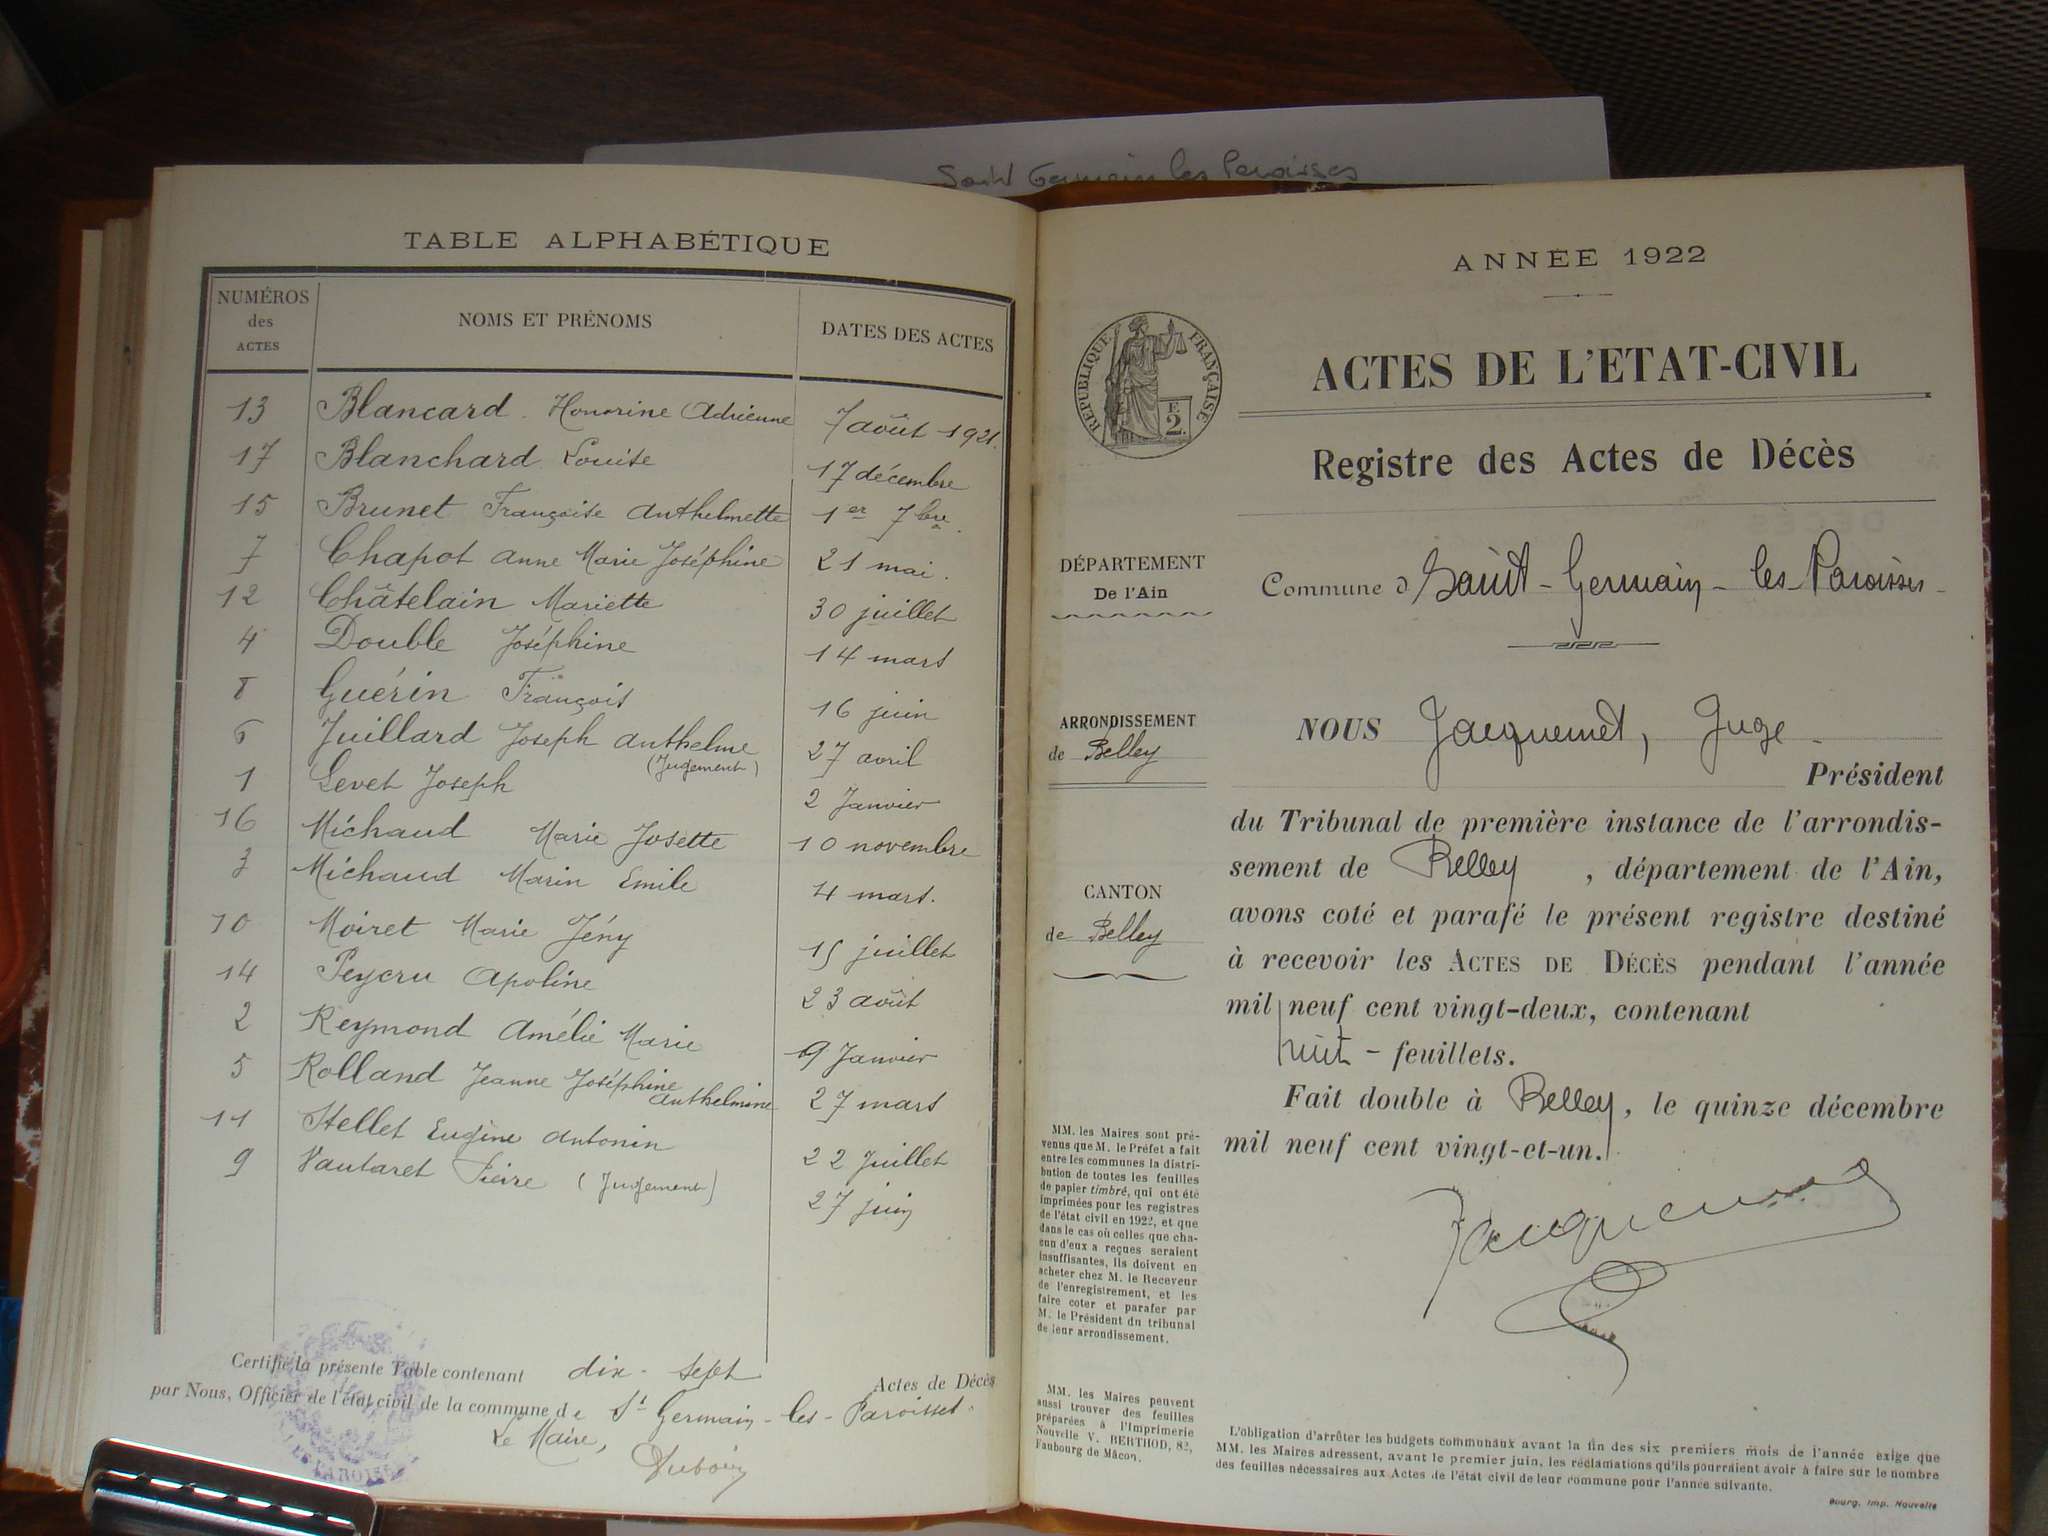 Saint Germain les Paroisses
TABLE ALPHABÉTIQUE
NUMÉROS des ACTES
NOMS ET PRÉNOMS
DATES DES ACTES
13 Blancard Honorine Adrienne 7 août 1921.
17 Blanchard Louise 17 décembre
15 Brunet Françoise Anthelmette 1er 7bre
7 Chapot Anne Marie Joséphine 21 mai.
12 Châtelain Mariette 30 juillet
4 Double Joséphine 14 mars
8 Guérin François 16 juin
6 Juillard Joseph Anthelme (Jugement) 27 avril
1 Levet Joseph 2 Janvier
16 Michaud Marie Josette 10 novembre
3 Michaud Marin Emile 4 mars.
10 Moiret Marie Jény 15 juillet
14 Peycru Apoline 23 août
2 Reymond Amélie Marie 9 Janvier
5 Rolland Jeanne Joséphine Anthelmine 27 mars
11 Stellet Eugène Antonin 22 Juillet
9 Vautaret Pierre (Jugement) 27 juin
Certifié la présente Table contenant dix-sept Actes de Décès
par Nous, Officier de l'état civil de la commune de St Germain-les-Paroisses.
Le Maire,
ANNÉE 1922
RÉPUBLIQUE FRANÇAISE
E 2.
ACTES DE L'ETAT-CIVIL
Registre des Actes de Décès
DÉPARTEMENT
De l'Ain
Commune d Saint-Germain-les-Paroisses-
ARRONDISSEMENT
de Belley
CANTON
de Belley
NOUS Jacquemet, Juge
Président
du Tribunal de première instance de l'arrondis-
sement de Belley, département de l'Ain,
avons coté et parafé le présent registre destiné
à recevoir les ACTES DE DÉCÈS pendant l'année
mil neuf cent vingt-deux, contenant
huit - feuillets.
Fait double à Belley, le quinze décembre
mil neuf cent vingt-et-un.
Jacquemet
MM. les Maires sont pré-
venus que M. le Préfet a fait
entre les communes la distri-
bution de toutes les feuilles
de papier timbré, qui ont été
imprimées pour les registres
de l'état civil en 1922, et que
dans le cas où celles que cha-
cun d'eux a reçues seraient
insuffisantes, ils doivent en
acheter chez M. le Receveur
de l'enregistrement, et les
faire coter et parafer par
M. le Président du tribunal
de leur arrondissement.
MM. les Maires peuvent
aussi trouver des feuilles
préparées à l'Imprimerie
Nouvelle V. BERTHOD, 82,
Faubourg de Mâcon.
L'obligation d'arrêter les budgets communaux avant la fin des six premiers mois de l'année exige que
MM. les Maires adressent, avant le premier juin, les réclamations qu'ils pourraient avoir à faire sur le nombre
des feuilles nécessaires aux Actes de l'état civil de leur commune pour l'année suivante.
Bourg. Imp. Nouvelle